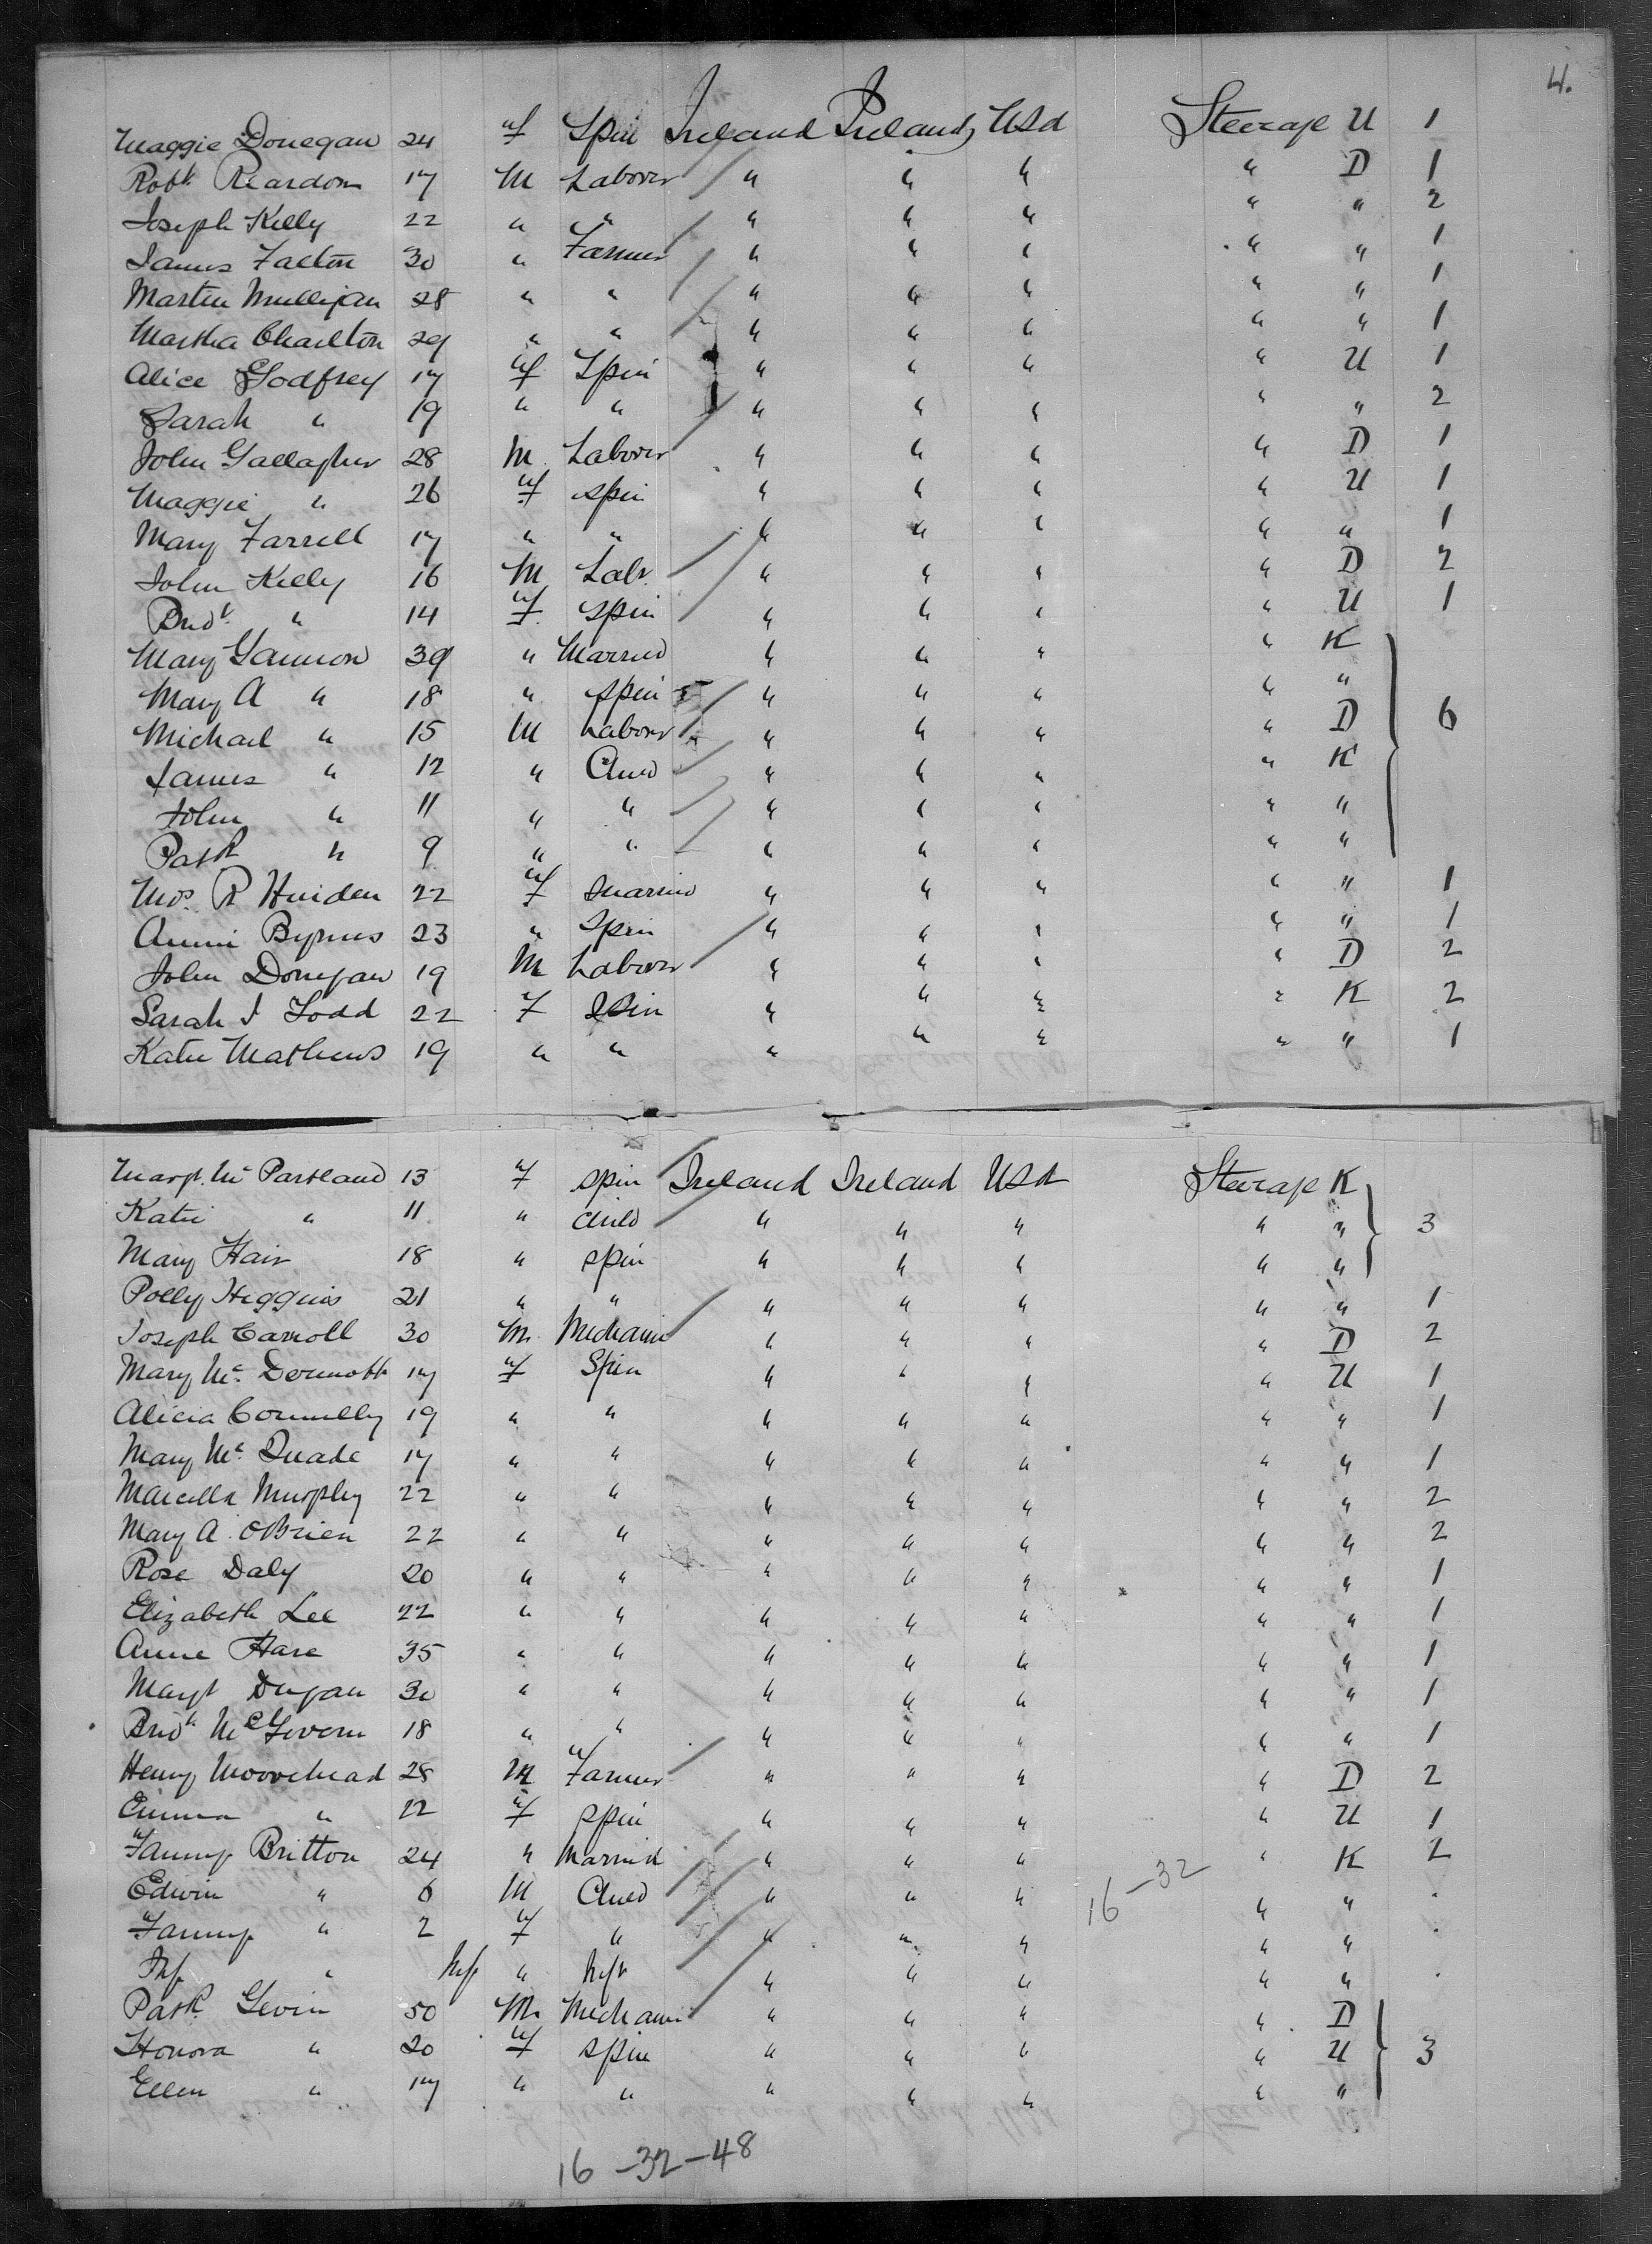 4.
Maggie Donegan 24 f Spin Ireland Ireland USA Steerage U 1
Robt. Reardon 17 M Laborer " " " " D 1
Joseph Kelly 22 " " " " " " " 2
James Fallon 30 " Farmer " " " " " 1
Martin Mulligan 28 " " " " " " " 1
Martha Charlton 29 " " " " " " " 1
Alice Godfrey 17 f Spin " " " " U 1
Sarah " 19 " " " " " " " 2
John Gallagher 28 M Laborer " " " " D 1
Maggie " 26 f spin " " " " U 1
Mary Farrell 17 " " " " " " " 1
John Kelly 16 M Labr. " " " " D 2
Bridt. " 14 f spin " " " " U 1
Mary Gannon 39 " Married " " " " K
Mary A " 18 " spin " " " " "
Michael " 15 M Laborer " " " " D 6
James " 12 " Child " " " " K
John " 11 " " " " " " "
Patk " 9 " " " " " " "
Mrs. R 22 f Married " " " " " 1
Annie Byrnes 23 " Spin " " " " " 1
John Donegan 19 M Laborer " " " " D 2
Sarah J Todd 22 F Spin " " " " K 2
Katie Mathews 19 " " " " " " " 1
Margt. Mc Partland 13 f spin Ireland Ireland USA Steerage K
Katie " 11 " child " " " " " 3
Mary Hair 18 " spin " " " " "
Polly Higgins 21 " " " " " " " 1
Joseph Carroll 30 M Mechanic " " " " D 2
Mary Mc Dermott 17 f Spin " " " " U 1
Alicia Connelly 19 " " " " " " " 1
Mary Mc Quade 17 " " " " " " " 1
Marcella Murphy 22 " " " " " " " 2
Mary A. OBrien 22 " " " " " " " 2
Rose Daly 20 " " " " " " " 1
Elizabeth Lee 22 " " " " " " " 1
Anne Hare 35 " " " " " " " 1
Margt Dugan 30 " " " " " " " 1
Bridt. McGovern 18 " " " " " " " 1
Henry Moorehead 28 M Farmer " " " " D 2
Emma " 22 f spin " " " " U 1
Fanny Britton 24 " Married " " " " K 2
Edwin " 6 M Child " " " 16-32 " "
Fanny " 2 f " " " " " "
Inf. " Inf " Inft " " " " "
Patk. Gevin 50 M Mechanic " " " " D
Honora " 20 f spin " " " " U 3
Ellen " 17 " " " " " " "
16-32-48